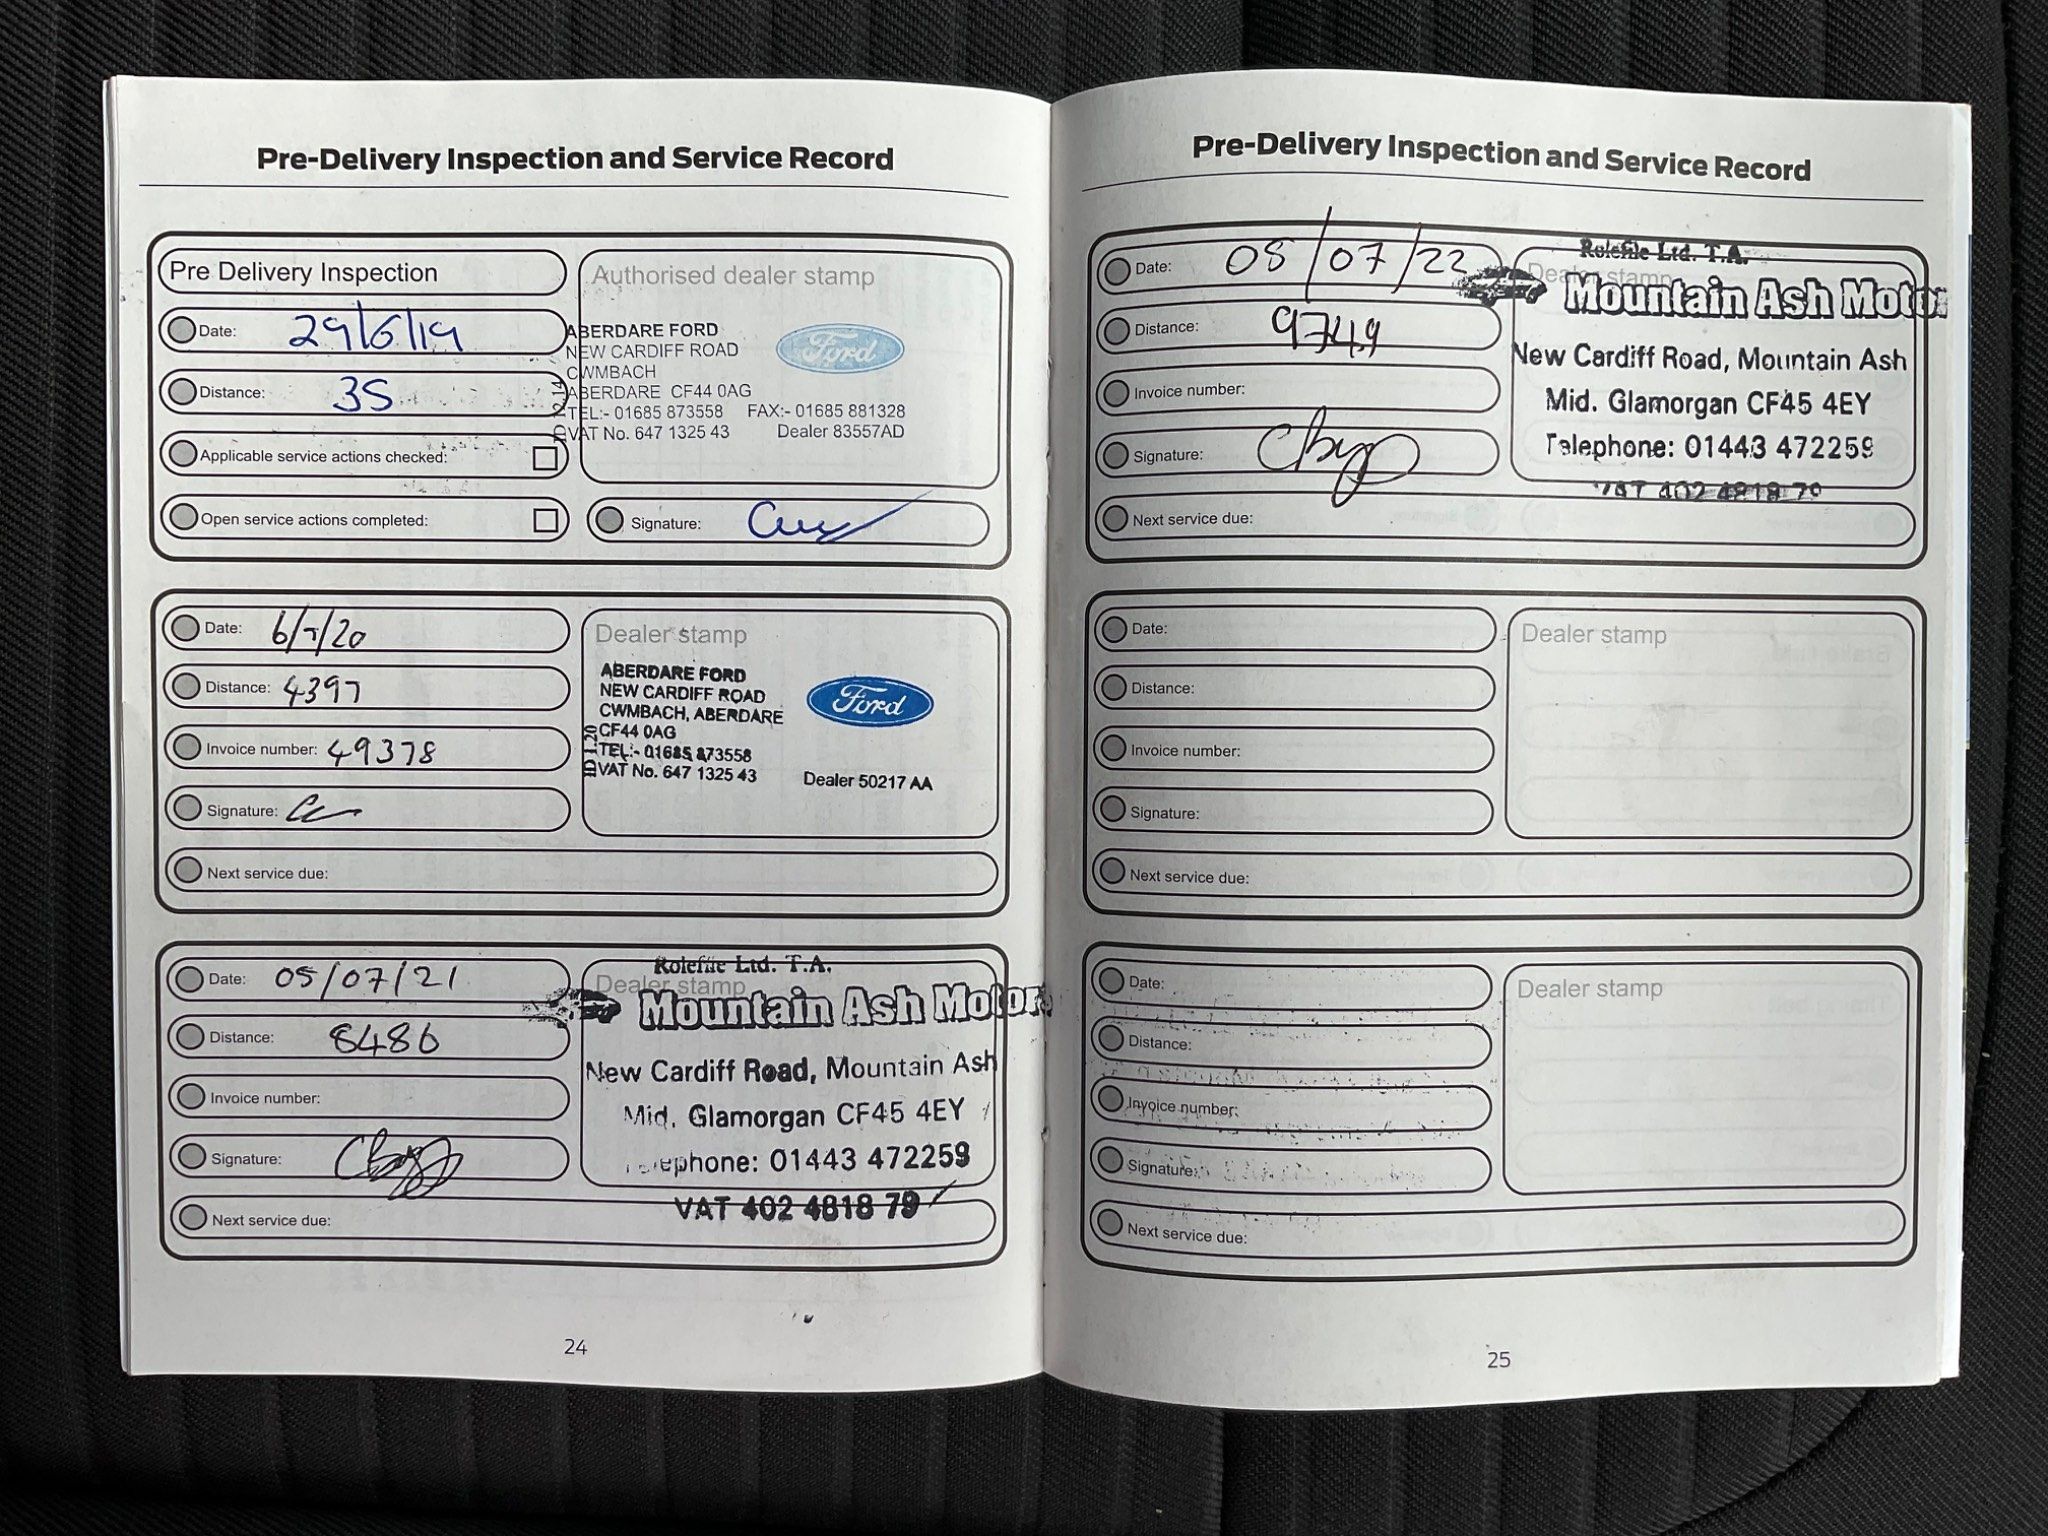 Pre-Delivery Inspection and Service Record
Pre Delivery Inspection
Date: 29/6/19
Distance: 35
Applicable service actions checked:
Open service actions completed:
Authorised dealer stamp
ABERDARE FORD
NEW CARDIFF ROAD
CWMBACH
ABERDARE CF44 0AG
TEL:- 01685 873558 FAX:- 01685 881328
VAT No. 647 1325 43 Dealer 83557AD
ID 12.14
Ford
Signature:
Date: 6/7/20
Distance: 4397
Invoice number: 49378
Signature:
Next service due:
Dealer stamp
ABERDARE FORD
NEW CARDIFF ROAD
CWMBACH, ABERDARE
CF44 0AG
TEL:- 01685 873558
VAT No. 647 1325 43 Dealer 50217 AA
ID 1.20
Ford
Date: 05/07/21
Distance: 8486
Invoice number:
Signature:
Next service due:
Dealer stamp
Rolefile Ltd. T.A.
Mountain Ash Motors
New Cardiff Road, Mountain Ash
Mid. Glamorgan CF45 4EY
Telephone: 01443 472259
VAT 402 4818 79
24
Pre-Delivery Inspection and Service Record
Date: 08/07/22
Distance: 9749
Invoice number:
Signature:
Next service due:
Dealer stamp
Rolefile Ltd. T.A.
Mountain Ash Motor
New Cardiff Road, Mountain Ash
Mid. Glamorgan CF45 4EY
Telephone: 01443 472259
VAT 402 4818 79
Date:
Distance:
Invoice number:
Signature:
Next service due:
Dealer stamp
Date:
Distance:
Invoice number:
Signature:
Next service due:
Dealer stamp
25